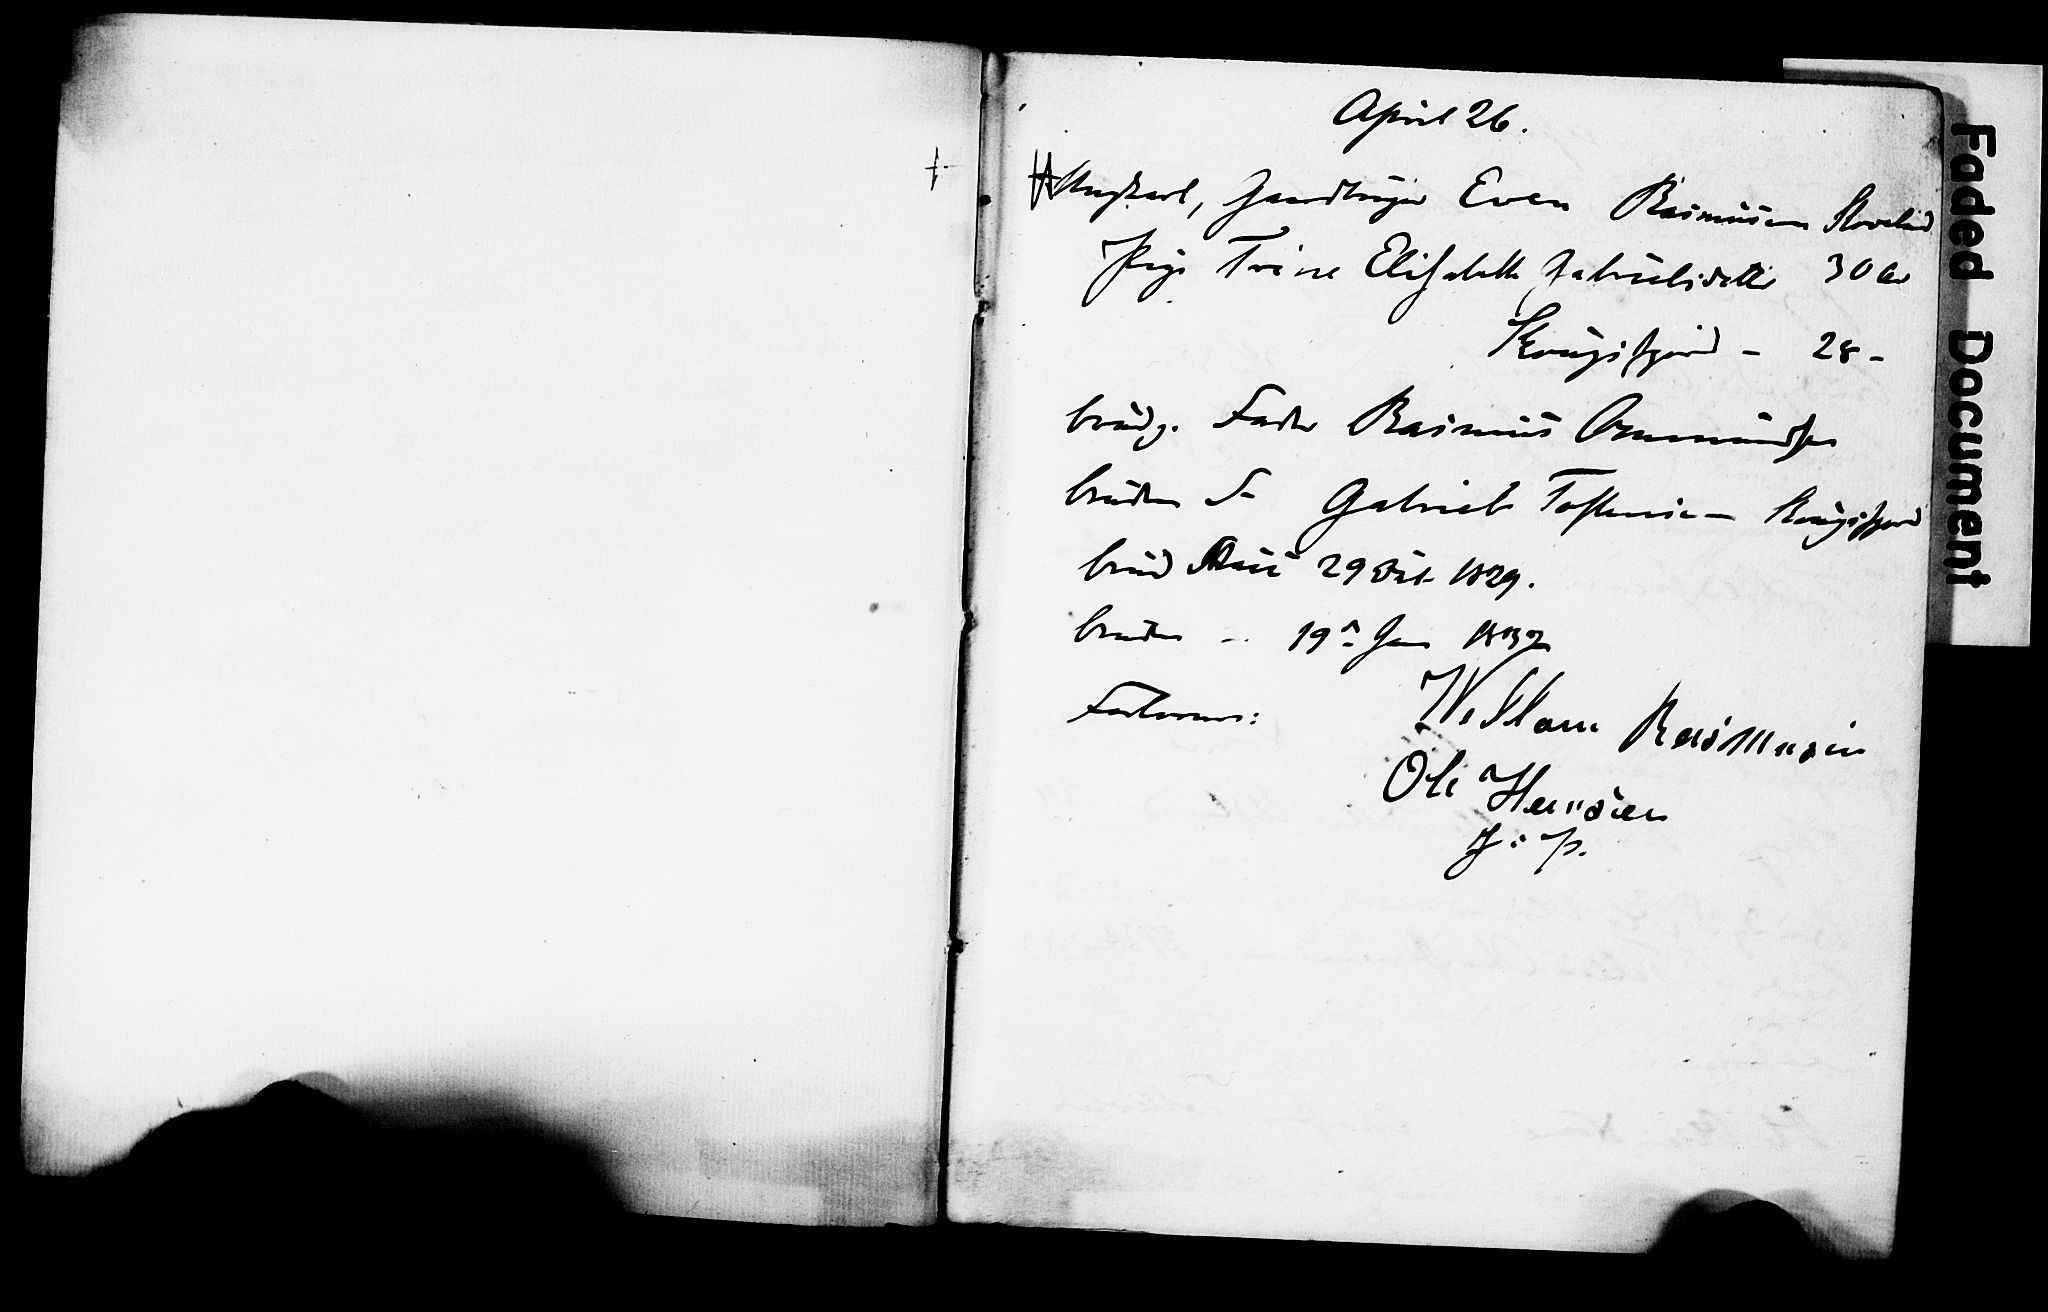 April 26.
Ungkarl, Gaardbruger Even Rasmusen Skoveland
Pige Trine Elisabeth Gabrielsdatter 30 Aar
Kongsfjord - 28 -
brudg. Fader Rasmus Ommundsen
bruden F- Gabriel Tostensen Kongsfjord
brud 29 Oct 1829.
bruden - 19 Jan 1832
Forlovere:
William Rasmusen
Ole Hansen
J: P.
Faded Document